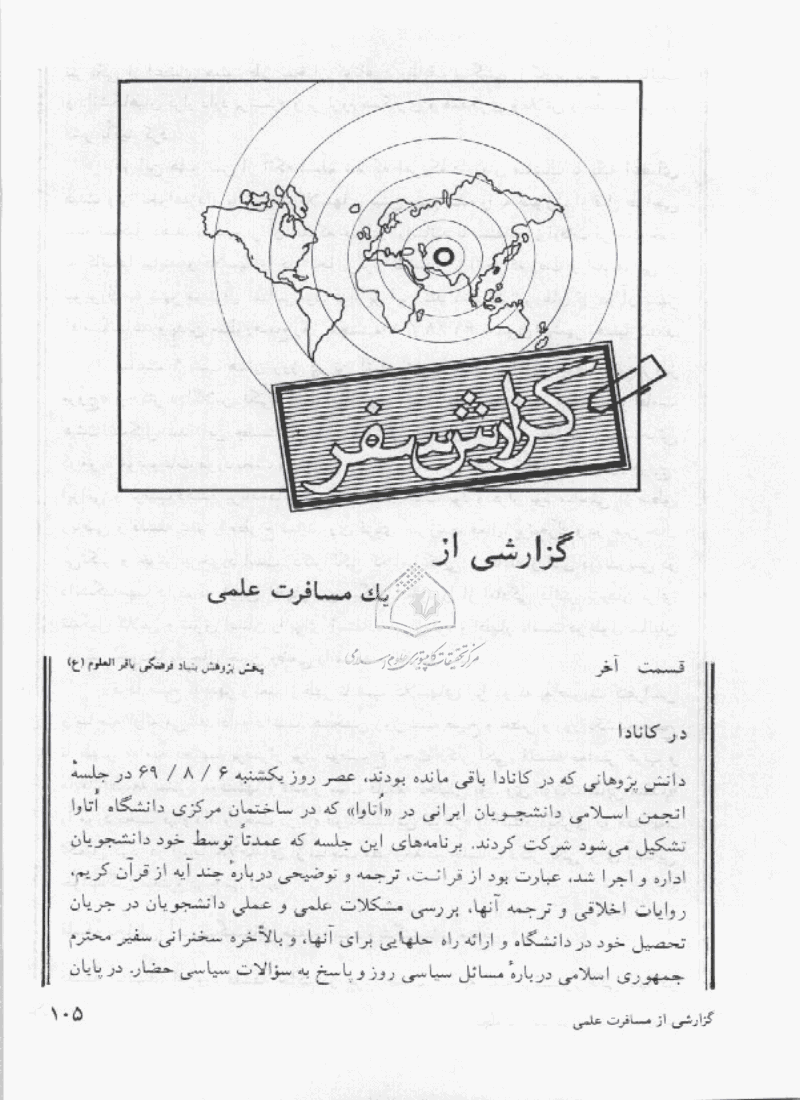 گزارش سفر
گزارشی از
یك مسافرت علمی
مرکز تحقیقات کامپیوتری علوم اسلامی
قسمت آخر
بخش پژوهش بنیاد فرهنگی باقر العلوم (ع)
در کانادا
دانش پژوهانی که در کانادا باقی مانده بودند، عصر روز یکشنبه ۶ / ۸ / ۶۹ در جلسهٔ
انجمن اسـلامی دانشجـویان ایرانی در «اتاوا» که در ساختمان مرکزی دانشگاه اُتاوا
تشکیل می‌شود شرکت کردند. برنامه‌های این جلسه که عمدتاً توسط خود دانشجویان
اداره و اجرا شد، عبارت بود از قرائت، ترجمه و توضیحی دربارهٔ چند آیه از قرآن کریم،
روایات اخلاقی و ترجمه آنها، بررسی مشکلات علمی و عملی دانشجویان در جریان
تحصیل خود در دانشگاه و ارائه راه حلهایی برای آنها، و بالأخره سخنرانی سفیر محترم
جمهوری اسلامی دربارهٔ مسائل سیاسی روز و پاسخ به سؤالات سیاسی حضار. در پایان
گزارشی از مسافرت علمی
۱۰۵